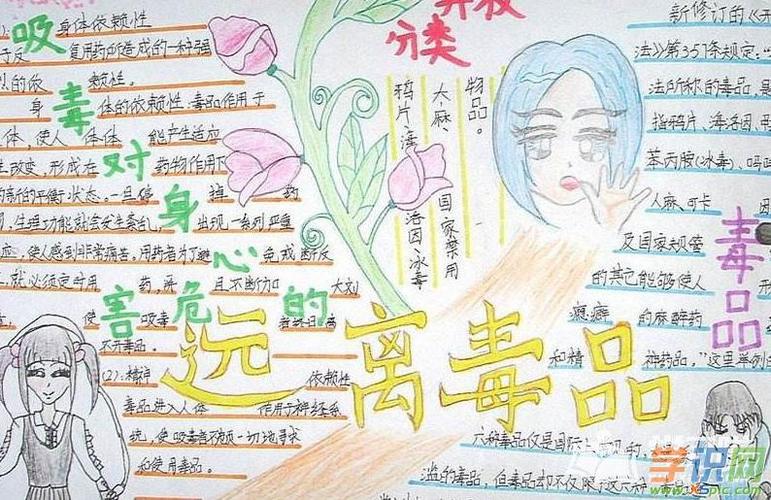 吸毒对身心的危害
身体依赖性
复用药所造成的一种强
烈的依赖性。
身体的依赖性:毒品作用于
人体,使人体体能产生适应
性改变,形成在药物作用下
的新的平衡状态。一旦停掉药
生理功能就会发生紊乱,出现一系列严重
反应,使人感到非常痛苦。用药者为了避免戒断反
就必须定时用药,
且不断加大剂
使吸毒者终日离
不开毒品。
(2):精神依赖性
毒品进入人体作用于神经系
统,使吸毒者不顾一切地寻求
和使用毒品。
分类
鸦片海洛因、冰毒
大麻、国家禁用
物品。
远离毒品
毒品
新修订的《刑
法》第357条规定:“
法所称的毒品,是
指鸦片、海洛因、甲
苯丙胺(冰毒)、吗啡
大麻、可卡因
及国家规管
的其它能够使人
瘾癖的麻醉药
和精神药品,”这里举例的
六种毒品仅是国际上常见的,
滥的毒品,但毒品却不仅限于这六种
学识网